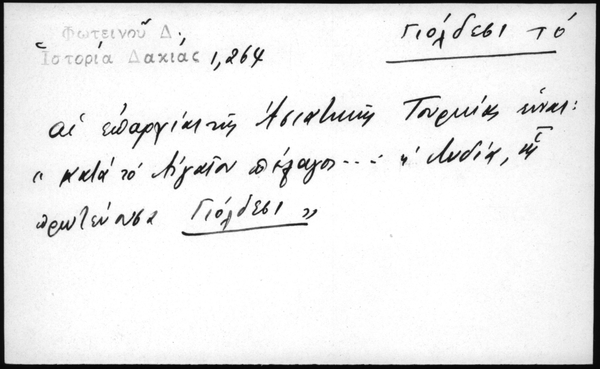 Φωτεινοῦ Δ.
Ἱστορία Δακιάς 1,264
Γιόλδεσι τό
αἱ ἐπαρχίαι τῆς Ἀσιατικῆς Τουρκίας εἶναι:
"κατά τό Αἰγαῖον πέλαγος... ἡ Λυδία, μὲ
πρωτεύουσα Γιόλδεσι"